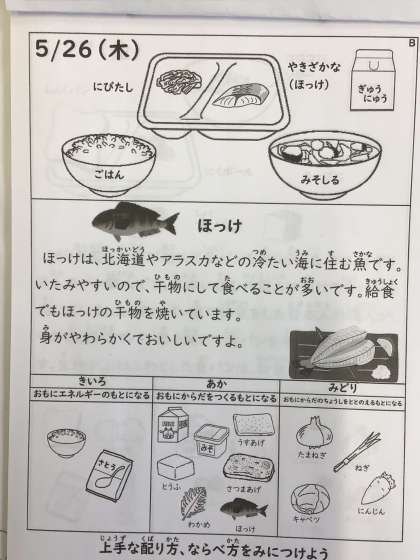 B
5/26(木)
にびたし
やきざかな
(ほっけ)
ぎゅう
にゅう
ごはん
みそしる
ほっけ
ほっけは、北海道やアラスカなどの冷たい海に住む魚です。
いたみやすいので、干物にして食べることが多いです。給食
でもほっけの干物を焼いています。
身がやわらかくておいしいですよ。
きいろ
おもにエネルギーのもとになる
さとう
あか
おもにからだをつくるもとになる
みそ
うすあげ
とうふ
さつまあげ
わかめ
ほっけ
みどり
おもにからだのちょうしをととのえるもとになる
たまねぎ
ねぎ
キャベツ
にんじん
上手な配り方、ならべ方をみにつけよう